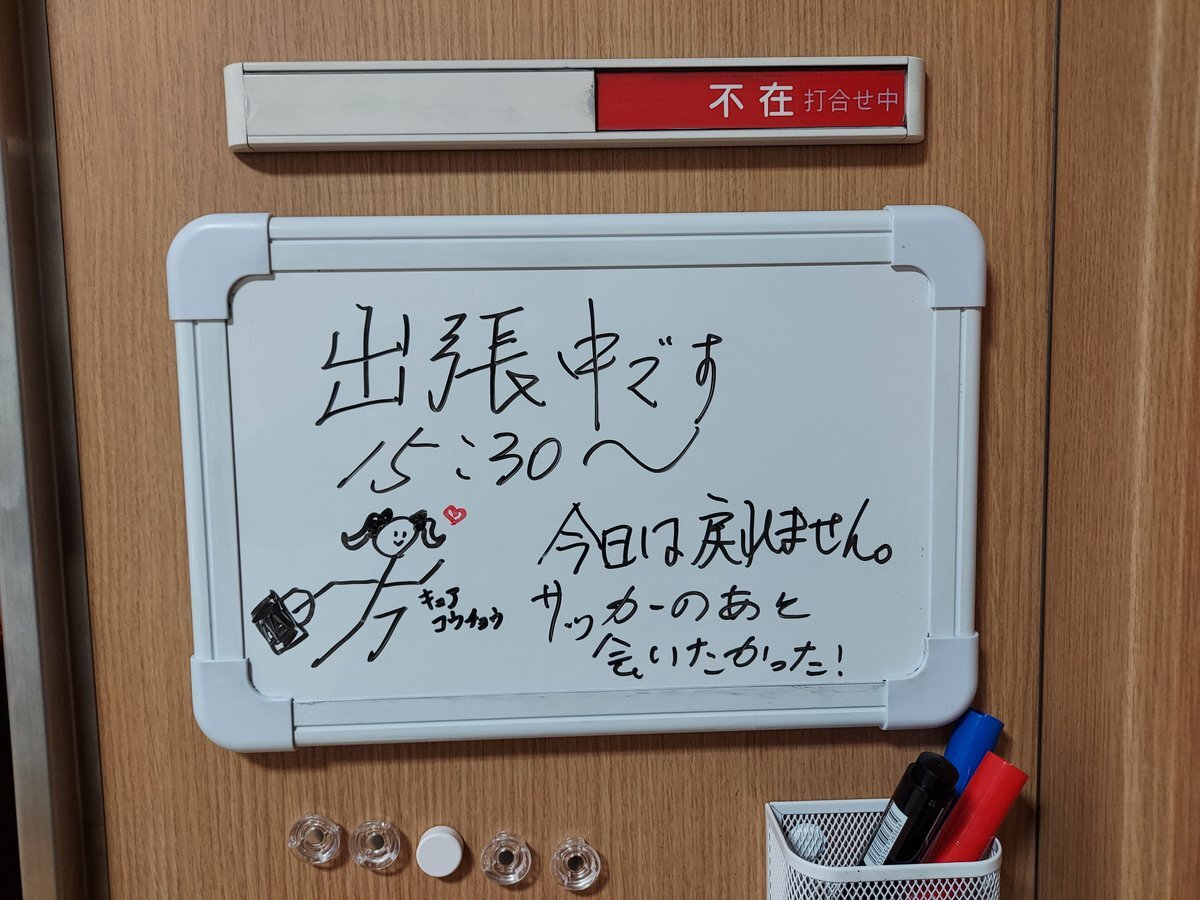 不在 打合せ中
出張中です
15:30〜
今日は戻れません。
サッカーのあと
会いたかった!
キュア
コウチョウ